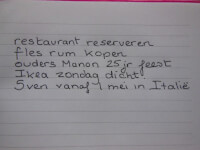 restaurant reserveren
fles rum kopen
ouders Manon 25 jr feest
Ikea zondag dicht!
Sven vanaf 1 mei in Italië